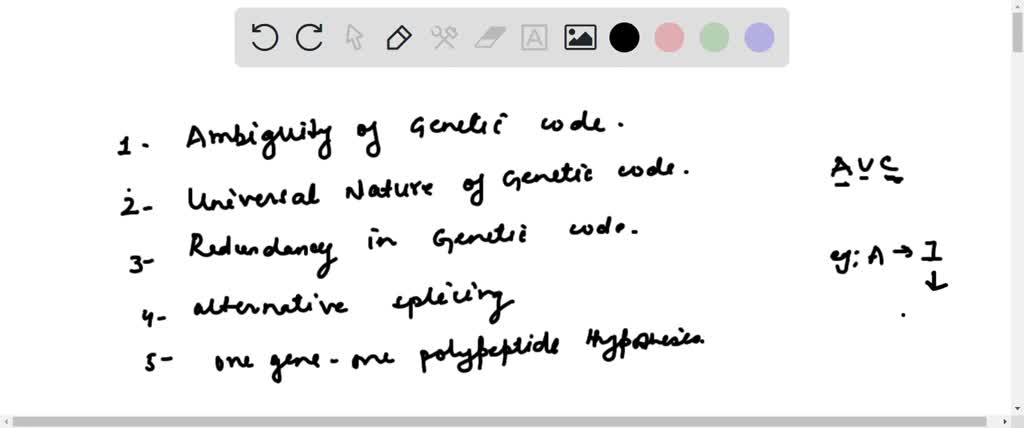 1. Ambiguity of Genetic code.
2- Universal Nature of Genetic code.
3- Redundancy in Genetic code.
4- alternative splicing
5- one gene-one polypeptide Hypothesis
A U C
eg: A → I
↓
A